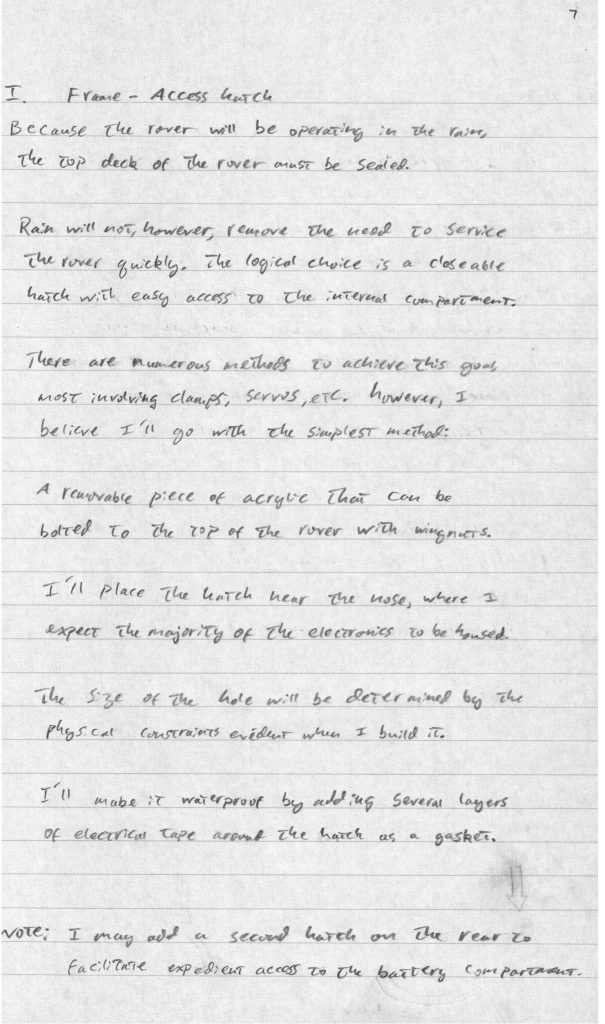 7
I. Frame - Access hatch
Because the rover will be operating in the rain,
the top deck of the rover must be sealed.
Rain will not, however, remove the need to service
the rover quickly. The logical choice is a closeable
hatch with easy access to the internal compartment.
There are numerous methods to achieve this goal
most involving clamps, servos, etc. however, I
believe I'll go with the simplest method:
A removable piece of acrylic that can be
bolted to the top of the rover with wingnuts.
I'll place the hatch near the nose, where I
expect the majority of the electronics to be housed.
The size of the hole will be determined by the
physical constraints evident when I build it.
I'll make it waterproof by adding several layers
of electrical tape around the hatch as a gasket.
Note: I may add a second hatch on the rear to
facilitate expedient access to the battery compartment.